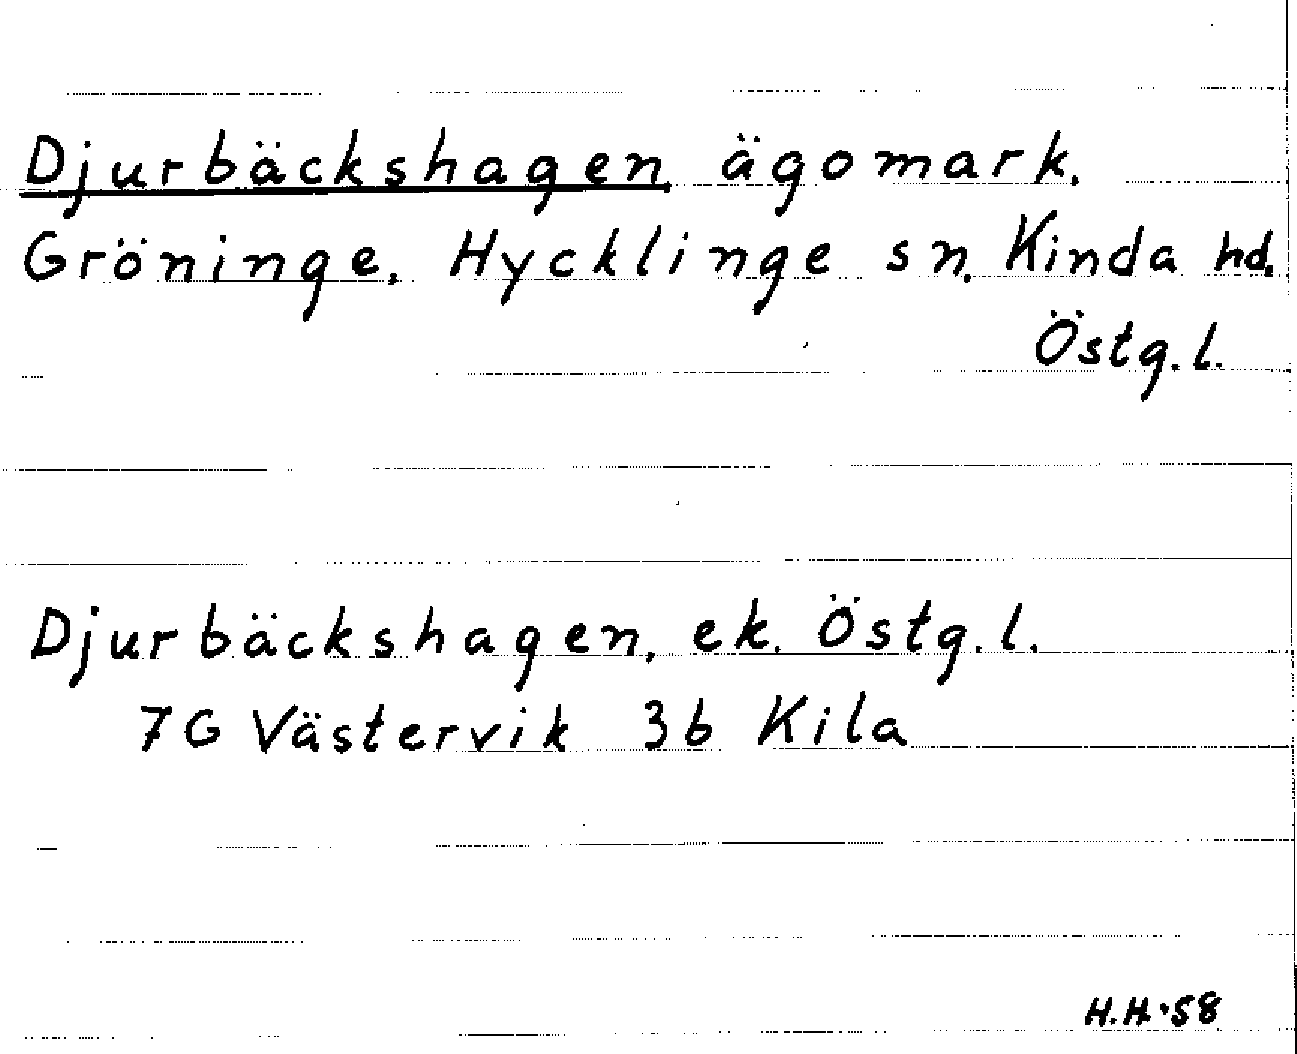 Djurbäckshagen, ägomark.
Gröninge, Hycklinge sn. Kinda hd.
Östg.l.
Djurbäckshagen, ek. Östg.l.
7G Västervik 3b Kila
H.H.·58